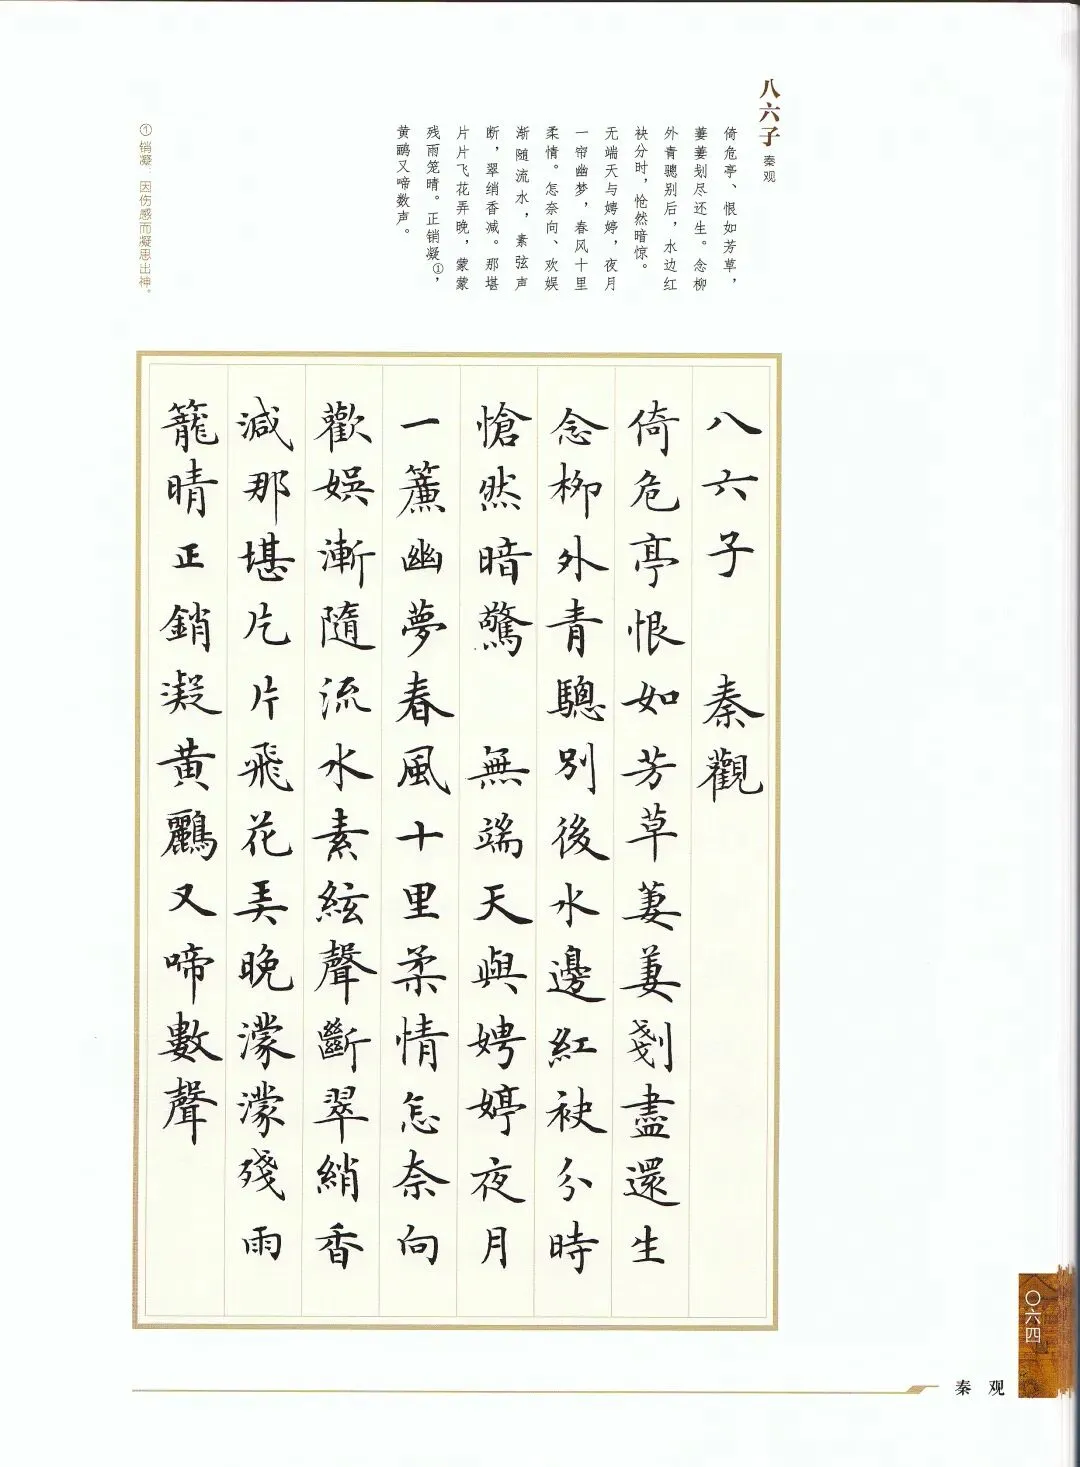 八六子
秦观
倚危亭、恨如芳草，
萋萋刬尽还生。念柳
外青骢别后，水边红
袂分时，怆然暗惊。
无端天与娉婷，夜月
一帘幽梦，春风十里
柔情。怎奈向、欢娱
渐随流水，素弦声
断，翠绡香减。那堪
片片飞花弄晚，蒙蒙
残雨笼晴。正销凝①，
黄鹂又啼数声。
①销凝：因伤感而凝思出神。
八六子 秦觀
倚危亭恨如芳草萋萋剗盡還生
念柳外青驄別後水邊紅袂分時
愴然暗驚 無端天與娉婷夜月
一簾幽夢春風十里柔情怎奈向
歡娛漸隨流水素絃聲斷翠綃香
減那堪片片飛花弄晚濛濛殘雨
籠晴正銷凝黄鸝又啼數聲
〇六四
秦观